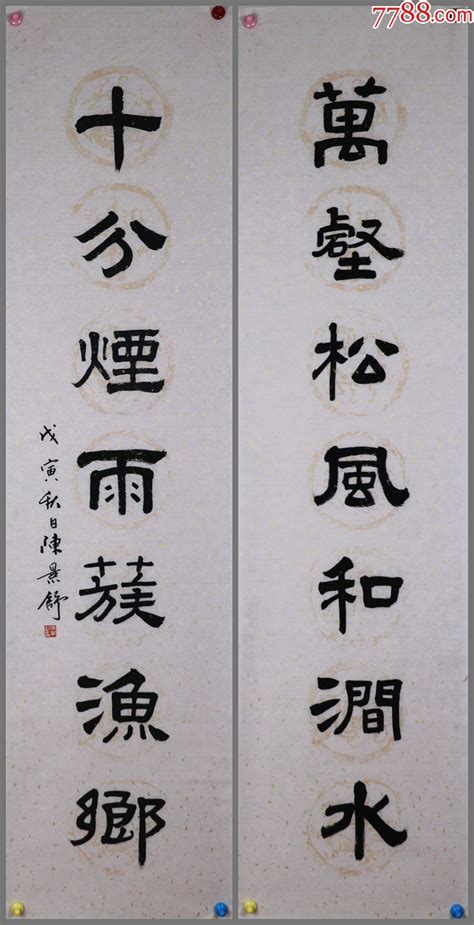 7788.com
萬壑松風和澗水
十分煙雨簇漁鄉
戊寅秋日陳景舒